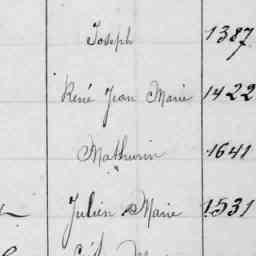 Joseph 1387
René Jean Marie 1422
Mathurin 1641
Julien Marie 1531